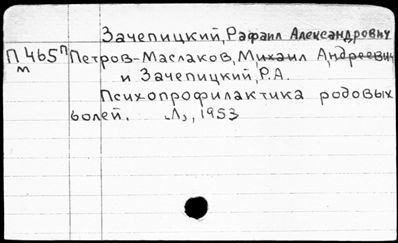 Зачепицкий, Рафаил Александрович
П 465 п Петров-Маслаков, Михаил Андреевич
м и Зачепицкий, Р.А.
Психопрофилактика родовых
болей. Л., 1953